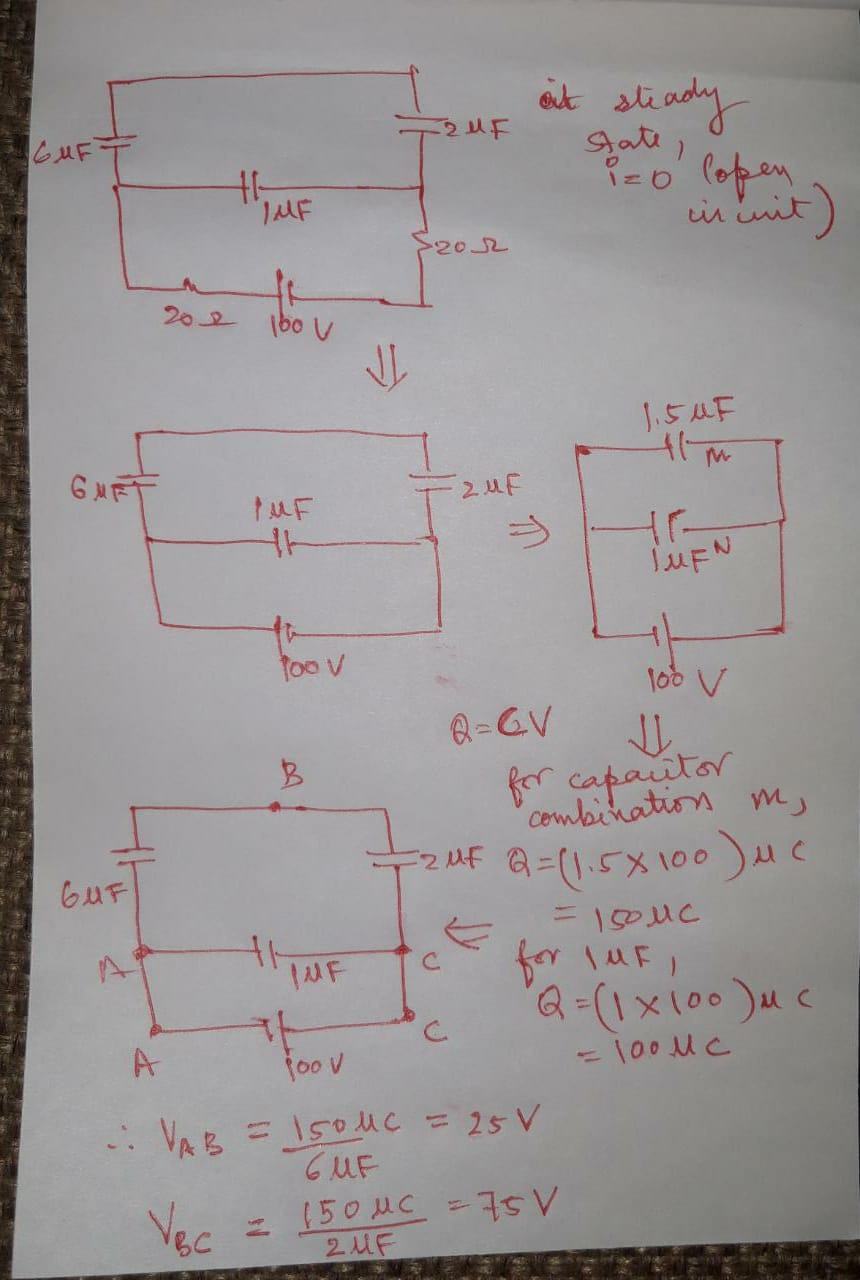 6 μF
2 μF
1 μF
20 Ω
20 Ω
100 V
at steady
state,
i = 0 (open
circuit)
⇓
6 μF
1 μF
2 μF
100 V
⇒
1.5 μF
m
1 μF N
100 V
Q = CV
⇓
for capacitor
combination m,
Q = (1.5 × 100) μC
= 150 μC
for 1 μF,
Q = (1 × 100) μC
= 100 μC
⇐
B
6 μF
2 μF
A
1 μF
C
A
100 V
C
∴ V_AB = 150 μC / 6 μF = 25 V
V_BC = 150 μC / 2 μF = 75 V